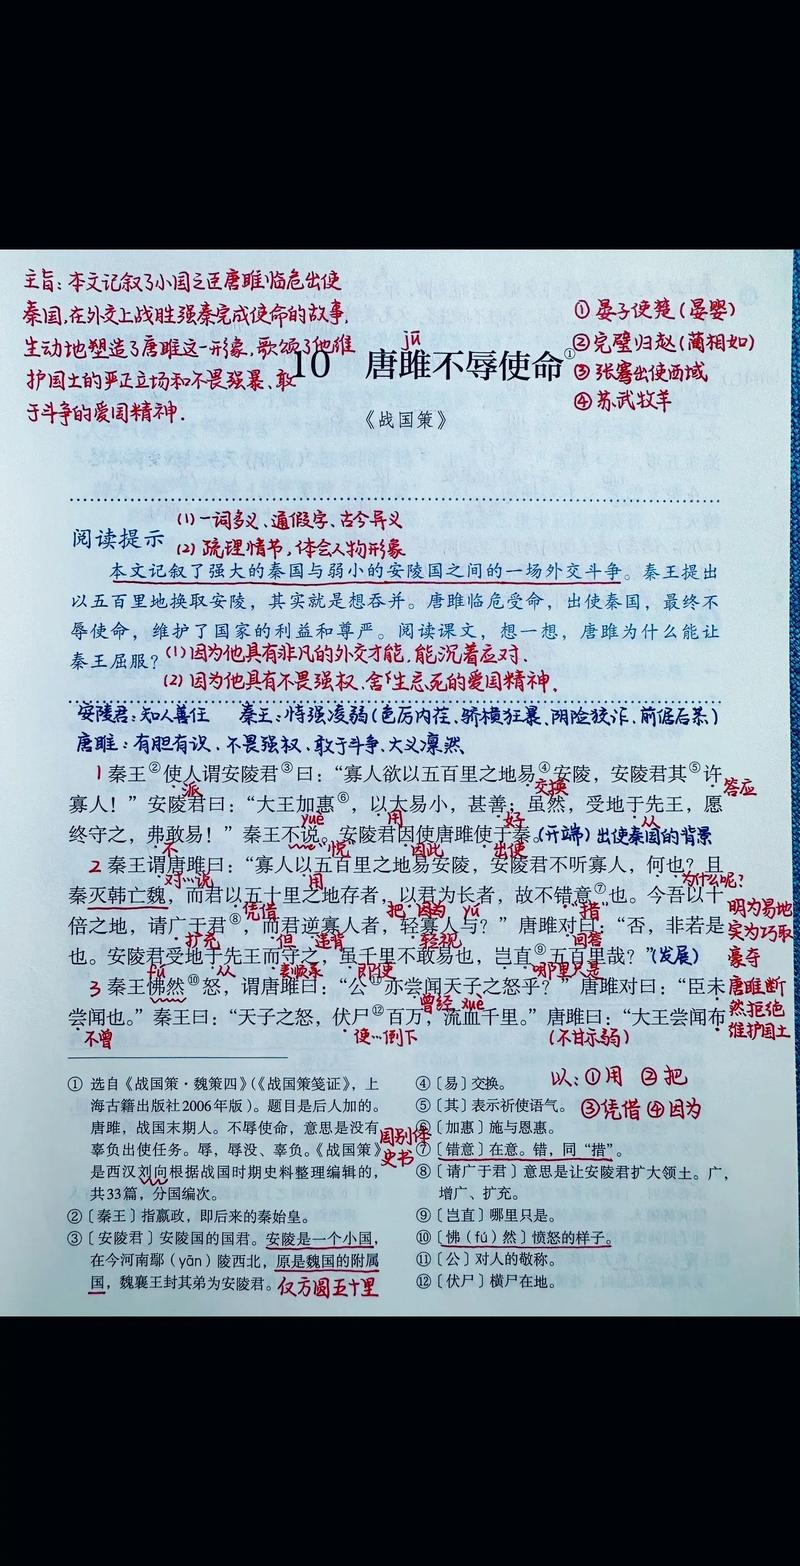 主旨：本文记叙了小国之臣唐雎临危出使
秦国,在外交上战胜强秦完成使命的故事,
生动地塑造了唐雎这一形象,歌颂了他维
护国土的严正立场和不畏强暴、敢
于斗争的爱国精神.
jū
10 唐雎不辱使命①
《战国策》
①晏子使楚(晏婴)
②完璧归赵(蔺相如)
③张骞出使西域
④苏武牧羊
阅读提示
(1)一词多义、通假字、古今异义
(2)疏理情节,体会人物形象
本文记叙了强大的秦国与弱小的安陵国之间的一场外交斗争。秦王提出
以五百里地换取安陵，其实就是想吞并。唐雎临危受命，出使秦国，最终不
辱使命，维护了国家的利益和尊严。阅读课文，想一想，唐雎为什么能让
秦王屈服？
(1)因为他具有非凡的外交才能,能沉着应对.
(2)因为他具有不畏强权、舍生忘死的爱国精神.
安陵君:知人善任 秦王:恃强凌弱(色厉内荏、骄横狂暴、阴险狡诈、前倨后恭)
唐雎:有胆有识、不畏强权、敢于斗争、大义凛然
1 秦王②使人谓安陵君③曰：“寡人欲以五百里之地易④安陵，安陵君其⑤许
派 交换 答应
寡人！”安陵君曰：“大王加惠⑥，以大易小，甚善；虽然，受地于先王，愿
yuè 用 好 从
终守之，弗敢易！”秦王不说。安陵君因使唐雎使于秦。(开端)出使秦国的背景
不 “悦” 因此 出使
2 秦王谓唐雎曰：“寡人以五百里之地易安陵，安陵君不听寡人，何也？且
对…说 用 为什么呢?
秦灭韩亡魏，而君以五十里之地存者，以君为长者，故不错意⑦也。今吾以十
凭借 把 因为 yú “措”
倍之地，请广于君⑧，而君逆寡人者，轻寡人与？”唐雎对曰：“否，非若是
扩充 但 违背 轻视 回答
明为易地
实为巧取
豪夺
也。安陵君受地于先王而守之，虽千里不敢易也，岂直⑨五百里哉？”(发展)
fú 从 表顺承 即使 哪里只是
3 秦王怫然⑩怒，谓唐雎曰：“公⑪亦尝闻天子之怒乎？”唐雎对曰：“臣未
曾经 xuè
尝闻也。”秦王曰：“天子之怒，伏尸⑫百万，流血千里。”唐雎曰：“大王尝闻布
不曾 使…倒下 (不甘示弱)
唐雎断
然拒绝
维护国土
① 选自《战国策·魏策四》（《战国策笺证》，上
海古籍出版社2006年版）。题目是后人加的。
唐雎，战国末期人。不辱使命，意思是没有
辜负出使任务。辱，辱没、辜负。《战国策》
国别体
史书
是西汉刘向根据战国时期史料整理编辑的，
共33篇，分国编次。
②〔秦王〕指嬴政，即后来的秦始皇。
③〔安陵君〕安陵国的国君。安陵是一个小国，
在今河南鄢（yān）陵西北，原是魏国的附属
国，魏襄王封其弟为安陵君。
仅方圆五十里
④〔易〕交换。
以:①用 ②把
③凭借 ④因为
⑤〔其〕表示祈使语气。
⑥〔加惠〕施与恩惠。
⑦〔错意〕在意。错，同“措”。
⑧〔请广于君〕意思是让安陵君扩大领土。广，
增广、扩充。
⑨〔岂直〕哪里只是。
⑩〔怫（fú）然〕愤怒的样子。
⑪〔公〕对人的敬称。
⑫〔伏尸〕横尸在地。